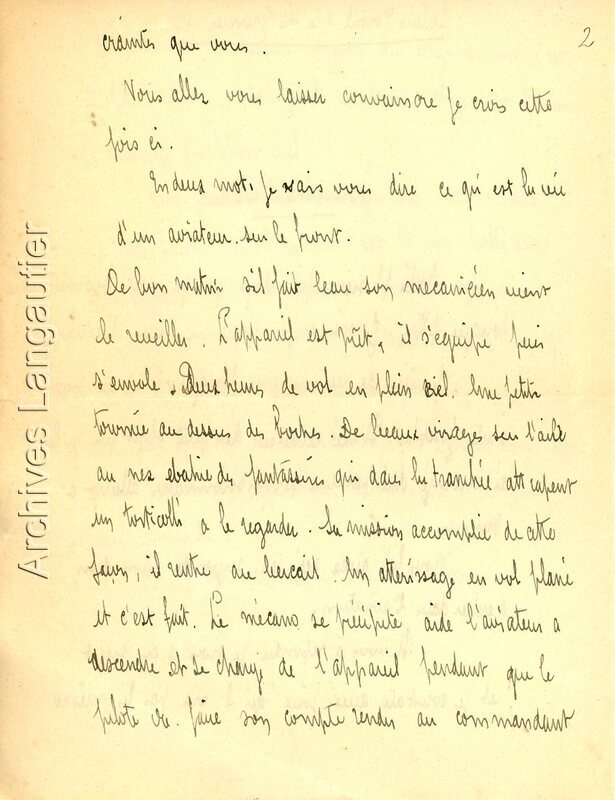 2
craintes que vous.
Vous allez vous laisser convaincre je crois cette
fois ci.
En deux mots je vais vous dire ce qu'est la vie
d'un aviateur sur le front.
De bon matin s'il fait beau son mecanicien vient
le reveiller. L'appareil est prêt, il s'equipe puis
s'envole. Deux heures de vol en plein ciel. Une petite
tournée au dessus des boches. De beaux virages sur l'aile
au nez ebahie des fantassins qui dans la tranchée attrapent
un torticolli a le regarder. Sa mission accomplie de cette
façon, il rentre au bercail. Un atterissage en vol plané
et c'est fait. Le mécano se précipite aide l'aviateur a
descendre et se charge de l'appareil pendant que le
pilote va faire son compte rendu au commandant
Archives Langautier